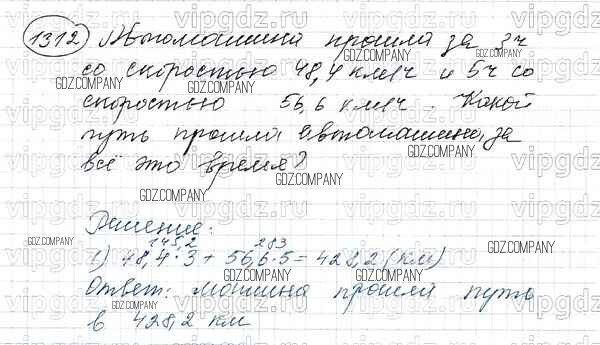 1312 Автомашина прошла за 3ч
со скоростью 48,4 км/ч и 5ч со
скоростью 56,6 км/ч. Какой
путь прошла автомашина за
всё это время?
Решение:
145,2 283
1) 48,4·3 + 56,6·5 = 428,2 (км)
Ответ: машина прошла путь
в 428,2 км